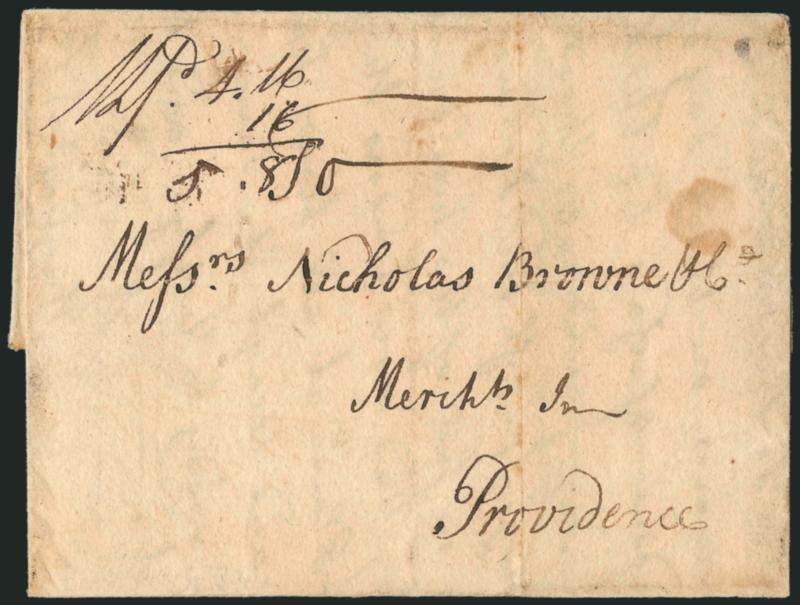 4.16
16
5.8 0
Messrs. Nicholas Browne & Co.
Merchts. In
Providence